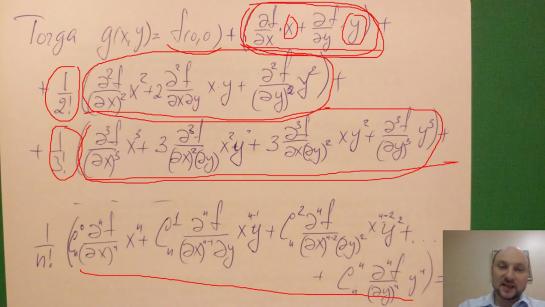 Тогда g(x,y) = f(0,0) + (∂f/∂x · x + ∂f/∂y y) +
+ 1/2! (∂²f/(∂x)² x² + 2 ∂²f/∂x∂y x·y + ∂²f/(∂y)² y²) +
+ 1/3! (∂³f/(∂x)³ x³ + 3 ∂³f/(∂x)²(∂y) x²y + 3 ∂³f/∂x(∂y)² xy² + ∂³f/(∂y)³ y³) +
1/n! (C_n^0 ∂ⁿf/(∂x)ⁿ xⁿ + C_n^1 ∂ⁿf/(∂x)ⁿ⁻¹∂y xⁿ⁻¹y + C_n^2 ∂ⁿf/(∂x)ⁿ⁻²(∂y)² xⁿ⁻²y² + ...
+ C_n^n ∂ⁿf/(∂y)ⁿ yⁿ) =